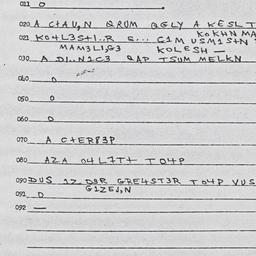 011 0
020 A C+AU,N QRUM QGLY A KESLT
KOKHN MA
021 KO4L3S+1..R C1M USM1S+N
MAM3L1,G3 KOLESH —
030 A D1..N1C3 QAP TSUM MELKN
040 0
050 0
060 0
070 A C+ER83P
080 AZA O4L7T+ TO4P
090 DUS 1Z D8R GRE4ST3R TO4P VUS
G1ZEL,N
091 0
092 —